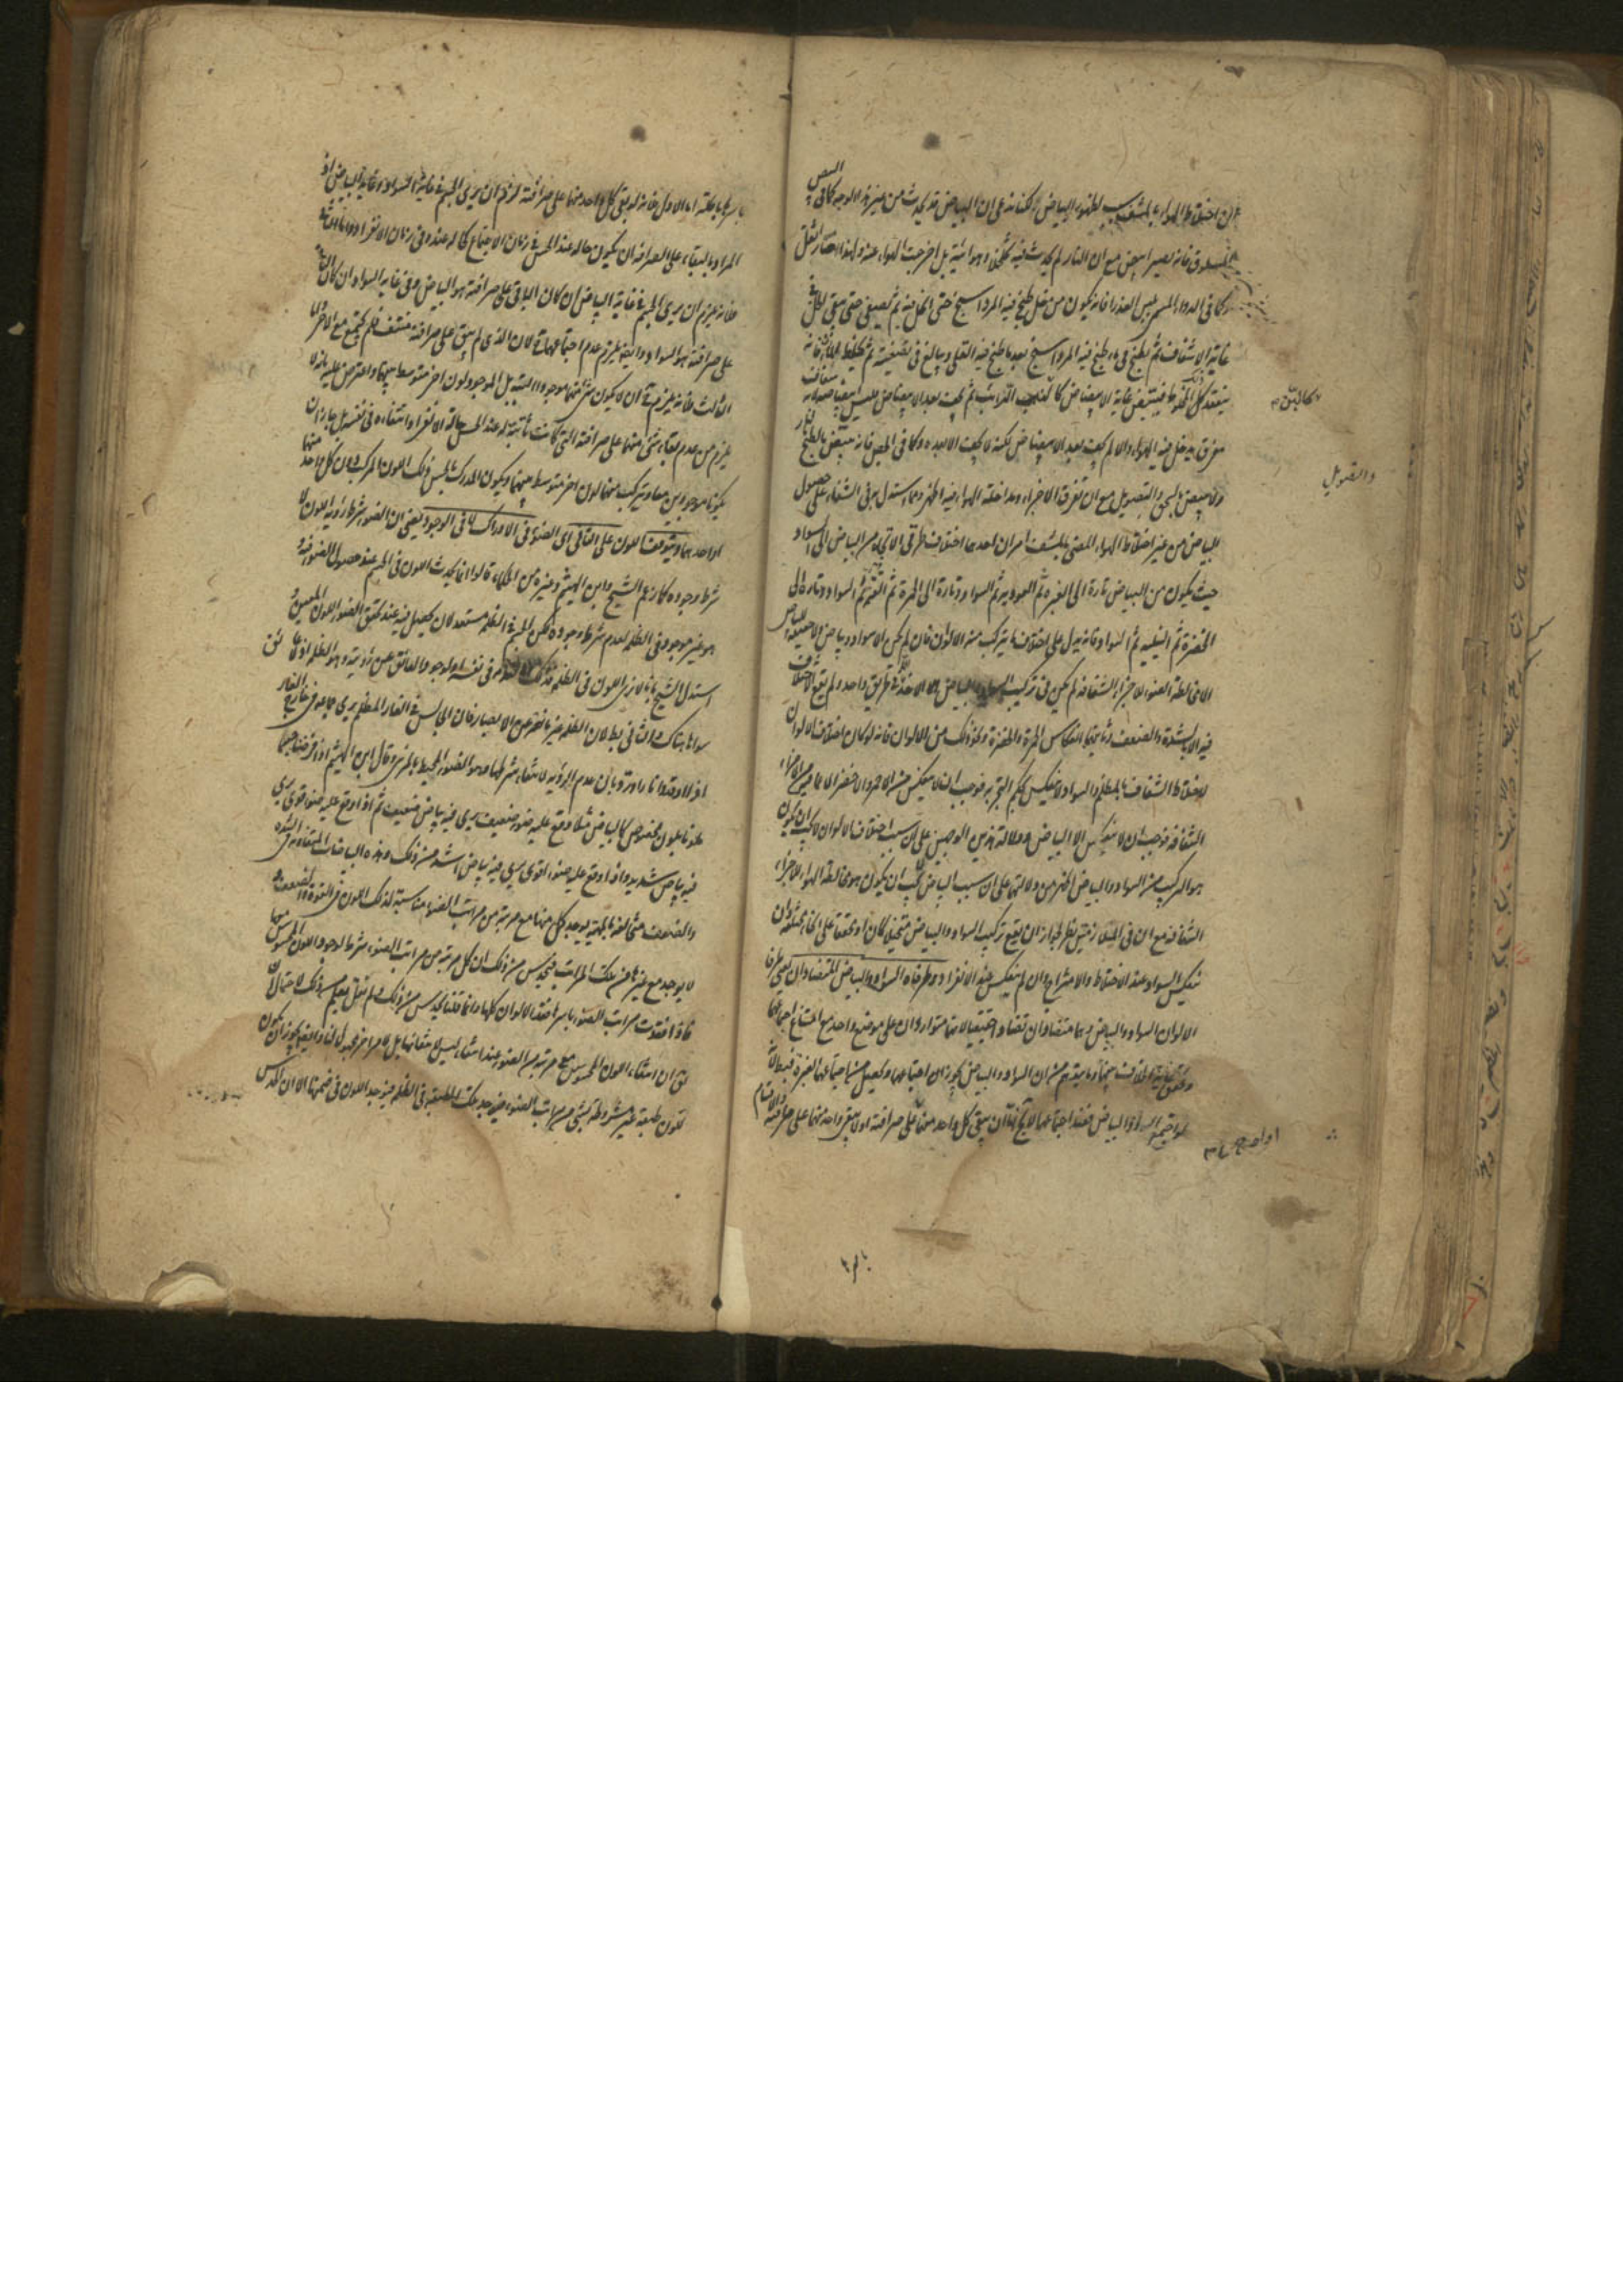 ان اختلاط الهواء بالمشف سبب لظهور البياض لكنا ندعي ان البياض قد يحدث من غير هذا الوجه كما في البيض
المسلوق فانه يصير ابيض مع ان النار لم يحدث فيه تخلخلا وهوائية بل اخرجت الهواء عنه ولهذا صار اثقل
وكما في الدواء المسمى بلبن العذراء فانه يكون من خل طبخ فيه المرداسنج حتى انحل فيه ثم يصفى حتى يبقى الخل في
غاية الاشفاف ثم يطبخ في ماء طبخ فيه القلى ويبالغ في تصفيته ثم يخلط الماءان فانه
ينعقد ذلك المخلوط فيبيض غاية الابيضاض كاللبن الرائب ثم يجف بعد الابيضاض فليس ابيضاضه لان شفافا
تفرق ودخل فيه الهواء والا لم يجف بعد الابيضاض لكنه لا يجف الا بعده وكما في الجص فانه يبيض بالطبخ بالنار
ولا يبيض بالسحق والتصويل مع ان تفرق الاجزاء ومداخلة الهواء فيه اظهر ومما استدل به في الشفاء على حصول
البياض من غير اختلاط الهواء المضيء بالمشف امران احدهما اختلاف طرق الاتجاه من البياض الى السواد
حيث يكون من البياض تارة الى الغبرة ثم العودية ثم السواد وتارة الى الحمرة ثم القتمة ثم السواد وتارة الى
الخضرة ثم النيلية ثم السواد فانه يدل على اختلاف ما يتركب منه الالوان فان لم يكن الا سواد وبياض ولا حقيقة للبياض
الا مخالطة الضوء للاجزاء الشفافة لم يكن في تركيب السواد والبياض الا الاخذ في طريق واحد ولم يقع الاختلاف
فيه الا بالشدة والضعف وثانيهما انعكاس الحمرة والخضرة ونحو ذلك من الالوان فانه لو كان اختلاف الالوان
لاختلاط الشفاف بالمظلم والسواد لا ينعكس بحكم التجربة فوجب ان لا ينعكس من الاحمر والاخضر الا ما فيهما من الاجزاء
الشفافة فوجب ان لا ينعكس الا البياض ودلالة هذين الوجهين على ان سبب اختلاف الالوان لا يجب ان يكون
هو التركيب من السواد والبياض اظهر من دلالتهما على ان سبب البياض لا يجب ان يكون هو مخالطة الهواء للاجزاء
الشفافة مع ان في الملازمتين نظرا لجواز ان يقع تركيب السواد والبياض متخيلا كان او محققا على انحاء مختلفة وان
ينعكس السواد عند الاختلاط والامتزاج وان لم ينعكس عند الانفراد وطرفاه السواد والبياض المتضادان يعني طرفا
الالوان السواد والبياض وهما متضادان تضادا حقيقيا لانهما متواردان على موضوع واحد مع امتناع اجتماعهما
وتحقق غاية الخلاف بينهما وما يتوهم من ان السواد والبياض يجوز ان اجتماعهما ويحصل من اجتماعهما الغبرة فباطل لانه
لو اجتمع السواد والبياض فعند اجتماعهما لا يخلو اما ان يبقى كل واحد منهما على صرافته او لا يبقى واحد منهما على صرافته والاقسام
والتصويل
باسرها باطلة اما الاول فلانه لو بقي كل واحد منهما على صرافته لزم ان يرى الجسم في غاية السواد وغاية البياض اذ
المراد بالبقاء على الصرافة ان يكون حاله عند الحس في زمان الاجتماع كحاله عنده في زمان الانفراد واما الثاني
فلانه يلزم ان يرى الجسم في غاية البياض ان كان الباقي على صرافته هو البياض وفي غاية السواد ان كان الباقي
على صرافته هو السواد وايضا يلزم عدم اجتماعهما لان الذي لم يبق على صرافته منتف فلم يجتمع مع الاخر واما
الثالث فلانه يلزم ان لا يكون شيء منهما موجودا البتة بل الموجود لون اخر متوسط بينهما واعترض عليه بانه لا
يلزم من عدم بقاء شيء منهما على صرافته التي كانت ثابتة له عند الحس حالة الانفراد انتفاءه في نفسه بل جاز ان
يكونا موجودين معا ويتركب منهما لون اخر متوسط بينهما ويكون المدرك بالحس ذلك اللون المركب دون كل واحد منهما
او احدهما ويتوقف اللون على الثاني اي الضوء في الادراك لا في الوجود يعني ان الضوء شرط لرؤية اللون لا
شرط وجوده كما زعم الشيخ وابن الهيثم وغيره من الحكماء قالوا انما يحدث اللون في الجسم عند حصول الضوء فيه و
هو غير موجود في الظلمة لعدم شرط وجوده لكن الجسم في الظلمة مستعد لان يحصل فيه عند تحقق الضوء اللون المعين و
استدل الشيخ بانا لا نرى اللون في الظلمة فذلك اما لعدمه في نفسه او لوجود العائق عن رؤيته وهو الظلمة اذ لا عائق
سواها هناك والثاني باطل لان الظلمة غير مانعة من الابصار فان الجالس في الغار المظلم يرى ما هو في خارج الغار
اذا اوقد نارا ورد بان عدم الرؤية لانتفاء شرطها وهو الضوء المحيط بالمرئي وقال ابن الهيثم اذا فرضنا جسما
ملونا بلون مخصوص كالبياض مثلا وقع عليه ضوء ضعيف يرى فيه بياض ضعيف ثم اذا وقع عليه ضوء قوي يرى
فيه بياض شديد واذا وقع عليه ضوء اقوى يرى فيه بياض اشد من ذلك وهذه البياضات المتفاوتة في الشدة
والضعف متخالفة بالماهية يوجد كل منها مع مرتبة من مراتب الضوء مناسبة لذلك اللون في القوة والضعف و
لا يوجد مع غيرها من تلك المراتب فيحدس من ذلك ان كل مرتبة من مراتب الضوء شرط لوجود اللون المحسوس معها
فاذا انتفت مراتب الضوء باسرها انتفت الالوان كلها وانما قلنا يحدس من ذلك ولم نقل يعلم من ذلك لاحتمال ان
يقال ان انتفاء اللون المحسوس مع مرتبة من الضوء عند انتفائها ليس لانتفائها بل لامر اخر مجهول لنا وايضا يجوز ان يكون
للون طبيعة غير مشروطة بشيء من مراتب الضوء فيوجد تلك الطبيعة في الظلمة فيوجد اللون في ضمنها الا ان الحدس